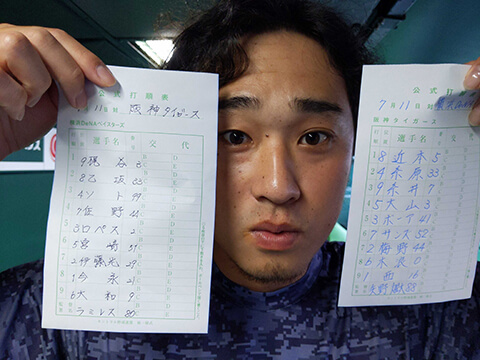 公式打順表
7月11日 対 阪神タイガース
横浜DeNAベイスターズ
選手名 交代
9 梶谷 3
8 乙坂 33
4 ソト 99
7 佐野 44
3 ロペス 2
5 宮﨑 51
2 伊藤光 29
1 今永 21
6 大和 9
ラミレス 80
公式打順表
7月11日 対
阪神タイガース
選手名 交代
1 8 近本 5
2 4 糸原 33
3 9 糸井 7
4 5 大山 3
5 3 ボーア 41
6 7 サンズ 52
7 2 梅野 44
8 6 木浪 0
9 1 西 16
矢野 88